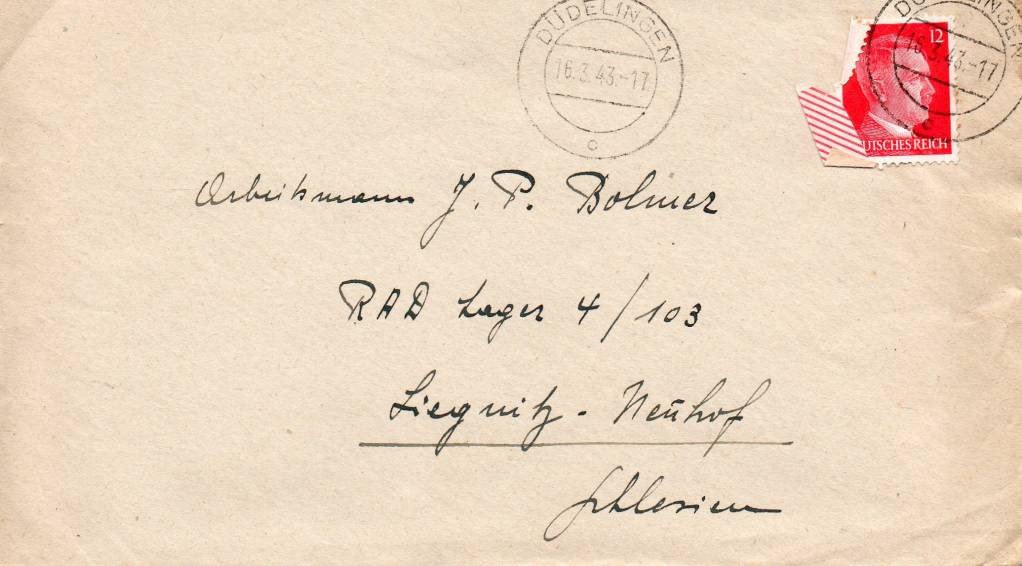 DÜDELINGEN
16.3.43.-17
c
DÜDELINGEN
16.3.43.-17
c
12
UTSCHES REICH
Arbeitsmann J. P. Bolmer
RAD Lager 4/103
Liegnitz - Neuhof
Schlesien